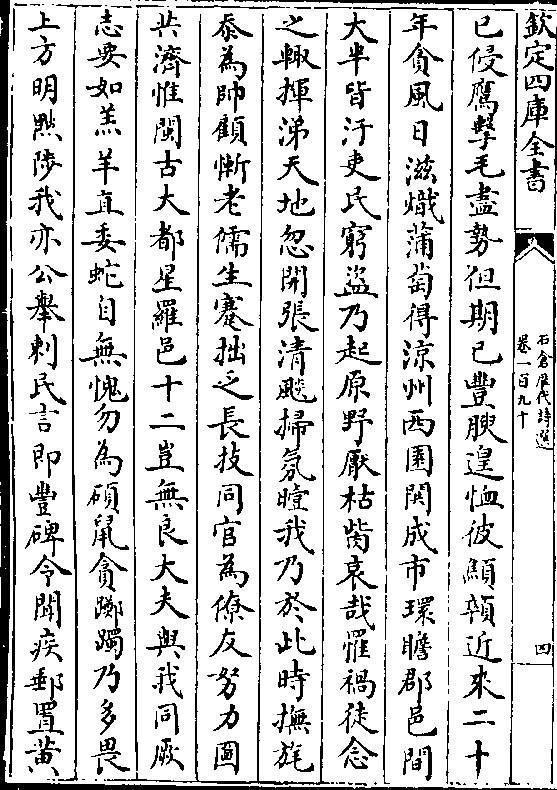 欽定四庫全書
石倉歴代詩選
卷一百九十
四
已侵鷹擊毛盡勢但期已豐腴遑恤彼顛頷近來二十
年貪風日滋熾蒲萄得涼州西園閧成市環瞻郡邑間
大半皆汙吏民窮盜乃起原野厭枯胔哀哉罹禍徒念
之輙揮涕天地忽開張清颷掃氛曀我乃於此時撫旄
忝為帥顧慚老儒生蹇拙乏長技同官為僚友努力圖
共濟惟閩古大都星羅邑十二豈無良大夫與我同厥
志要如羔羊直委蛇自無愧勿為碩鼠貪躑躅乃多畏
上方明黜陟我亦公舉刺民言即豐碑令聞疾郵置黄